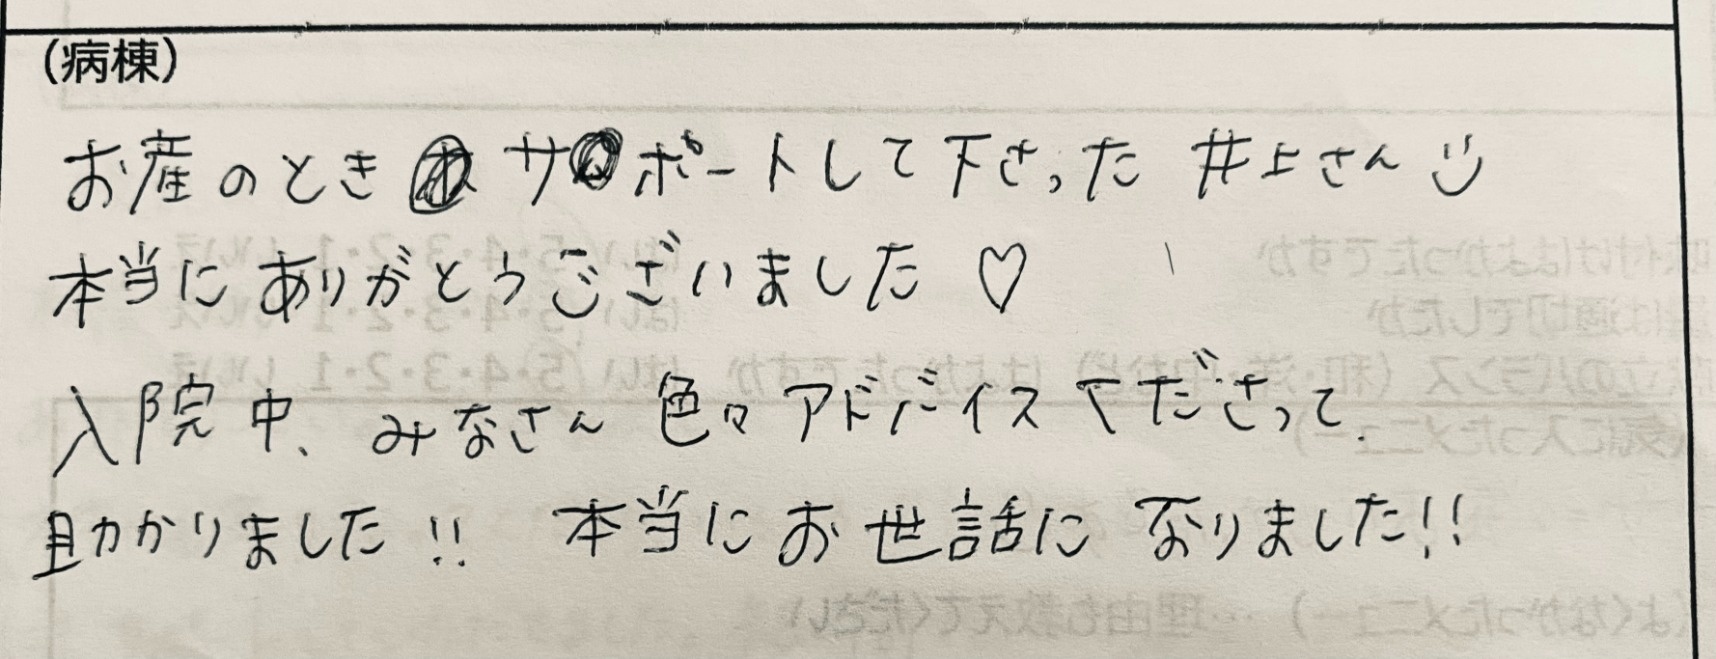 (病棟)
お産のとき サポートして下さった 井上さん
本当に ありがとうございました♡
入院中、みなさん 色々 アドバイスくださって、
助かりました!! 本当に お世話に なりました!!